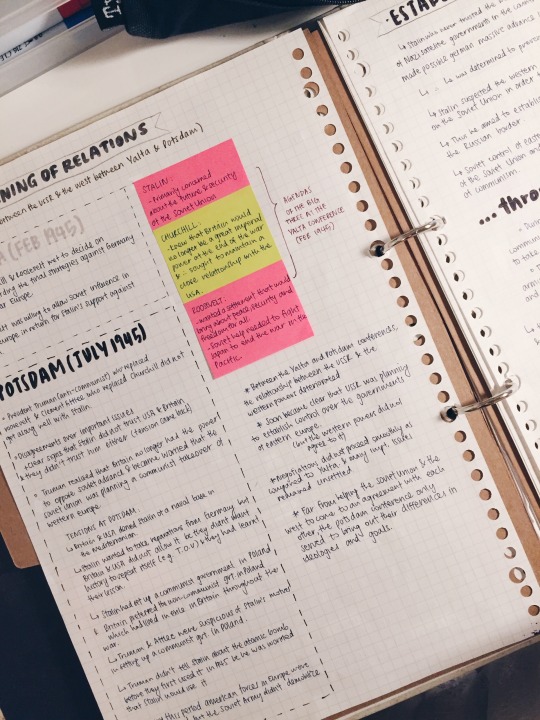 NING OF RELATIONS
between the USSR & the west between Yalta & Potsdam)
A (FEB 1945)
ill & Roosevelt met to decide on
the final strategies against Germany
Europe.
was willing to allow Soviet influence in
Europe in return for Stalin's support against
STALIN:
- Primarily concerned
about the future & security
of the Soviet Union
CHURCHILL:
- Knew that Britain would
no longer be a great imperial
power at the end of the war
& sought to maintain a
close relationship with the
USA.
ROOSEVELT:
- wanted a settlement that would
bring about peace, security and
freedom for all.
- Soviet help needed to fight
Japan to end the war in the
Pacific.
AGENDAS
OF THE BIG
THREE AT THE
YALTA CONFERENCE
(FEB 1945)
POTSDAM (JULY 1945)
President Truman (anti-communist) who replaced
Roosevelt & Clement Attlee who replaced Churchill did not
get along well with Stalin.
Disagreements over important issues
Clear signs that Stalin didn't trust USA & Britain
& they didn't trust him either (tension came back)
Truman realised that Britain no longer had the power
to oppose Soviet
Soviet union was planning a communist takeover of
western europe.
TENSIONS AT POTSDAM
↳ Britain & USA denied Stalin a naval base in
the mediterranean.
↳ Stalin wanted to take reparations from Germany but
Britain & USA did not allow it bc they didn't want
history to repeat itself (e.g. T.O.V) & they had learnt
their lesson.
↳ Stalin had set up a communist government in Poland
& Britain preferred the non-communist govt in Poland
which had lived in exile in Britain throughout the
war.
↳ Truman & Attlee were suspicious of Stalin's motives
in setting up a communist govt. in Poland.
↳ Truman didn't tell Stalin about the atomic bomb
before they first used it in 1945 bc he was worried
that Stalin would use it
this period american forces in Europe were
but the Soviet Army didn't demobilize
* Between the Yalta and Potsdam conferences,
the relationship between the USSR & the
western powers deteriorated
* Soon became clear that USSR was planning
to establish control over the governments
of eastern europe. (but the western powers did not
agree to it)
* Negotiations did not proceed smoothly as
compared to Yalta & many impt. issues
remained unsettled
* Far from helping the Soviet Union & the
west to come to an agreement with each
other, the potsdam conference only
served to bring out their differences in
ideologies and goals.
ESTAB
↳ Stalin who never trusted the
of Nazi satellite governments in the
made possible german massive advance
was determined to prevent
↳ Stalin suspected the western
on the Soviet Union in order
↳ Thus he aimed to establish
the Russian border
↳ Soviet control of east
of the Soviet Union and
of communism
...throu